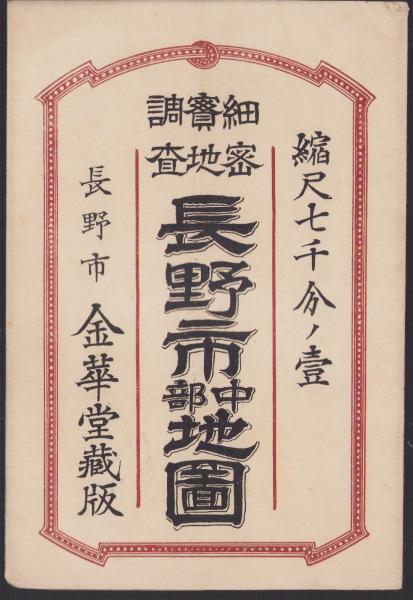 縮尺七千分ノ壹
細密實地調査
長野市中部地圖
長野市 金華堂藏版